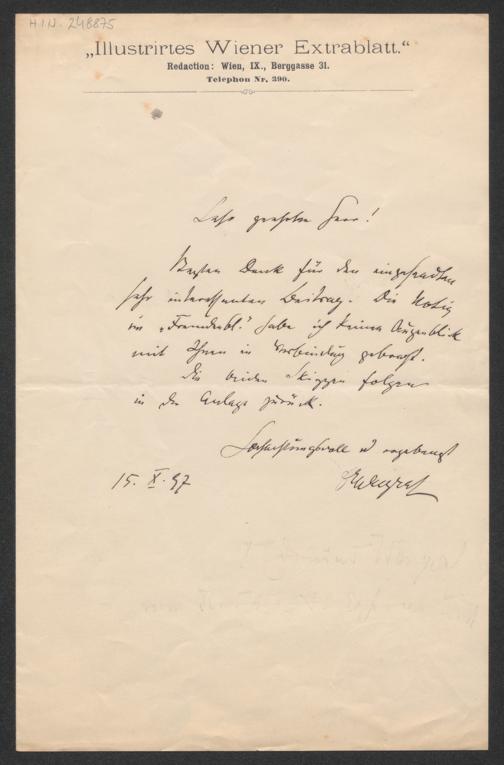 H.I.N. 248875
„Illustrirtes Wiener Extrablatt.“
Redaction: Wien, IX., Berggasse 31.
Telephon Nr. 290.
Sehr geehrter Herr!
Besten Dank für den eingesandten
sehr interessanten Beitrag. Die Notiz
im „Fremdenbl.“ habe ich keinen Augenblick
mit Ihnen in Verbindung gebracht.
Die beiden Skizzen folgen
in der Anlage zurück.
Hochachtungsvoll u ergebenst
15. X. 97